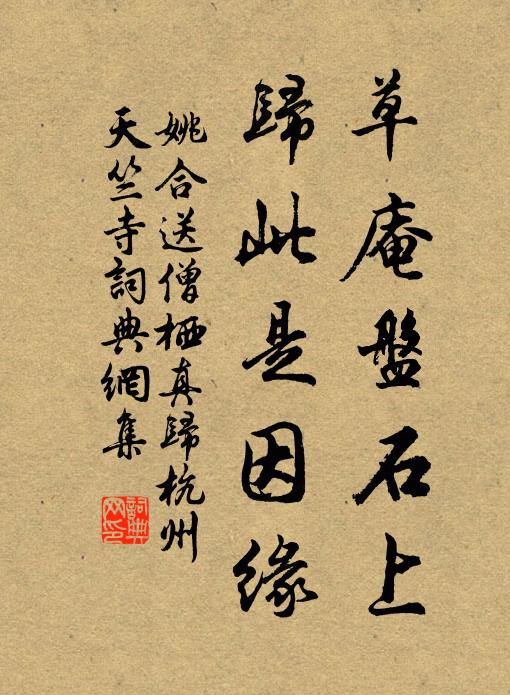 草庵盤石上
歸此是因緣
姚合送僧栖真歸杭州
天竺寺詞典網集
詞典網印